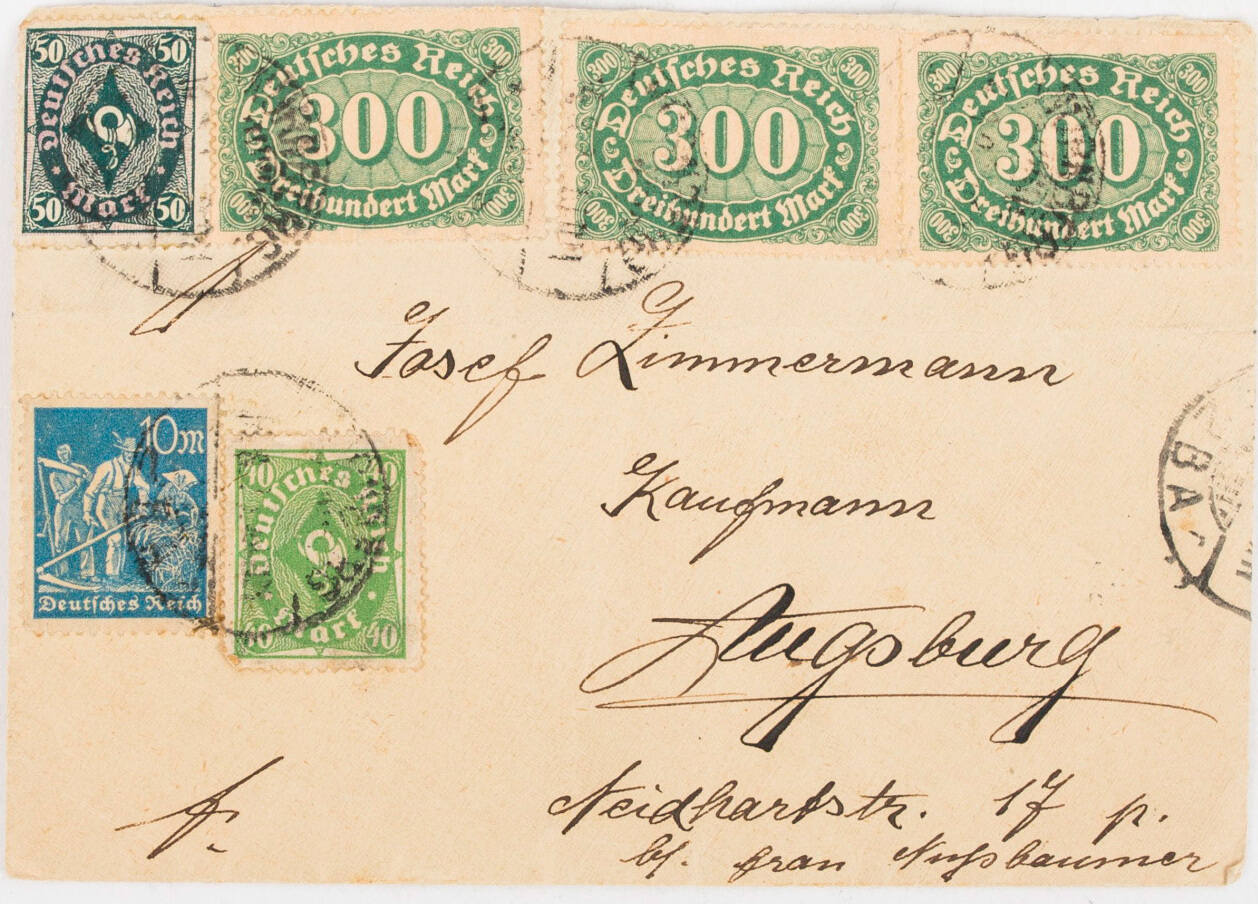 50 50
Deutsches Reich
Mark
50 50
300 300
Deutsches Reich
300
Dreihundert Mark
300 300
300 300
Deutsches Reich
300
Dreihundert Mark
300 300
300 300
Deutsches Reich
300
Dreihundert Mark
300 300
Josef Zimmermann
10 M
Deutsches Reich
40 40
Deutsches Reich
Mark
40 40
Kaufmann
BA
Augsburg
Neidhartstr. 17 p.
bf. Frau Nußbaumer